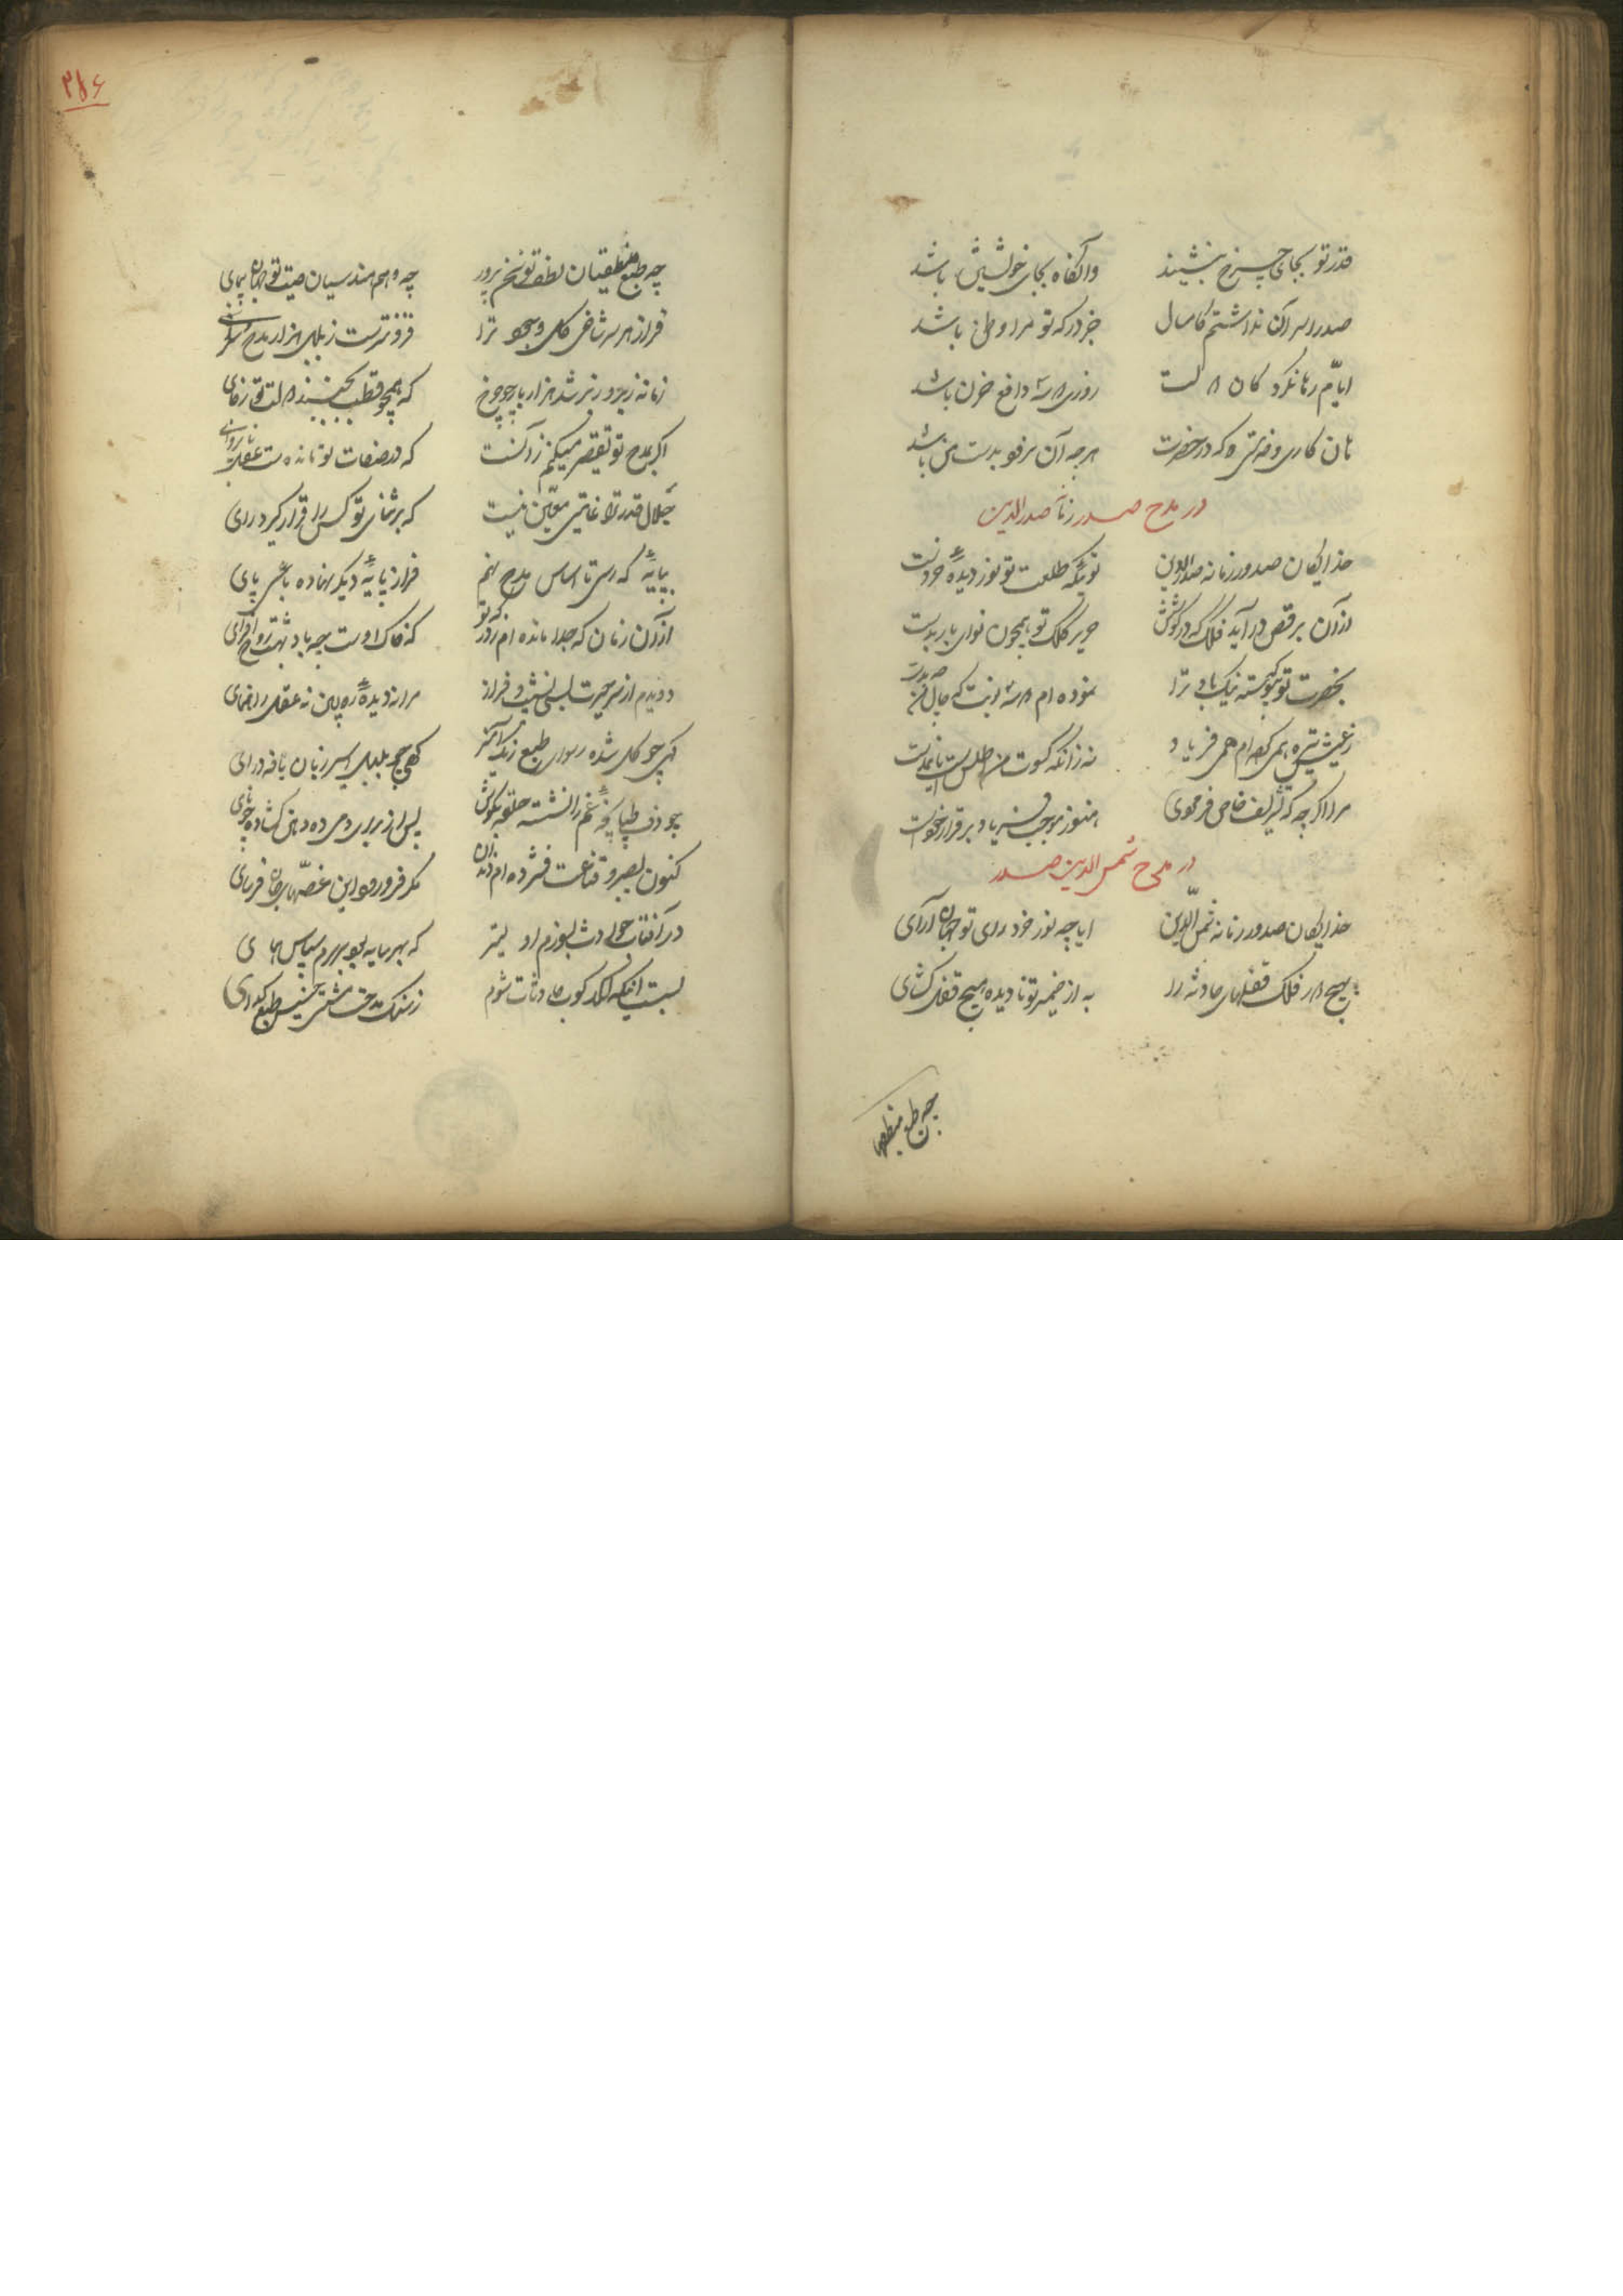 قدر تو بجای چرخ بنشیند
وانگاه بجای خویشتن باشد
صدرا سر آن نداشتم کامسال
جز درگه تو مرا وطن باشد
ایام رها نکرد کان
روزی دافع حزن باشد
هرچه آن نرود بدست من باشد
در مدح صدر زمانه صدرالدین
خدایگان صدور زمانه صدرالدین
توئیکه طلعت تو نور دیدهٔ خردست
از آن برقص درآید فلک که در گوشش
صریر کلک تو همچون نوای باربدست
بحضرت تو که پیوسته نیک باد ترا
نموده ام نوبت که حال من
ز عیش تیره همی کرده ام همی فریاد
نه زانکه کسوت من اطلس است یا نمدست
مرا اگر چه که تشریف خاص فرمودی
هنوز موجب فریاد برقرار خودست
در مدح شمس الدین صدر
خدایگان صدور زمانه شمس الدین
ایا چه نور خور رای تو جهان آرای
بهیچ دور فلک قفلهای حادثه را
به از ضمیر تو نادیده هیچ قفل گشای
چه طبع منطقیان
۲۸۶
چه طبع منطقیان لطف تو سخن پرور
چه وهم هندسیان صیت تو جهان پیمای
فراز هر سر شاخی گل و بجو ترا
فزونترست ز بلبل هزار مدح سرای
زمانه زیر و زبر شد هزار بار چو چرخ
که همچو قطب نجنبید دولتت از جای
اگر بمدح تو تقصیر میکنم زآنست
که در صفات تو مانده ست عقل
جلال قدر ترا غایتی معین نیست
که بر ثنای تو کس را قرار گیرد رای
بپایهٔ که رسی تا اساس مدح نهم
فراز پایهٔ دیگر نهاده باشی پای
از آن زمان که جدا مانده ام ز درگه تو
که خاک اوست چه باد بهشت روح افزای
دویدم از سر حیرت بسی نشیب و فراز
مرا نه دیدهٔ ره بین نه عقل راهنمای
گهی چو گل شده رسوای طبع رنگ آمیز
گهی چو بلبل اسیر زبان یافه درای
چو دف طپانچهٔ غم را نشسته حلقه بگوش
کنون بصبر و قناعت فشرده ام دندان
مگر فرو رود این غصهای جان فرسای
در آفتاب حوادث بسوزم اولیتر
که بهر سایه بود بردنم سپاس همای
بست آنکه لگدکوب حادثات شوم
ز ننگ مدحت مشتی خسیس طبع گدای